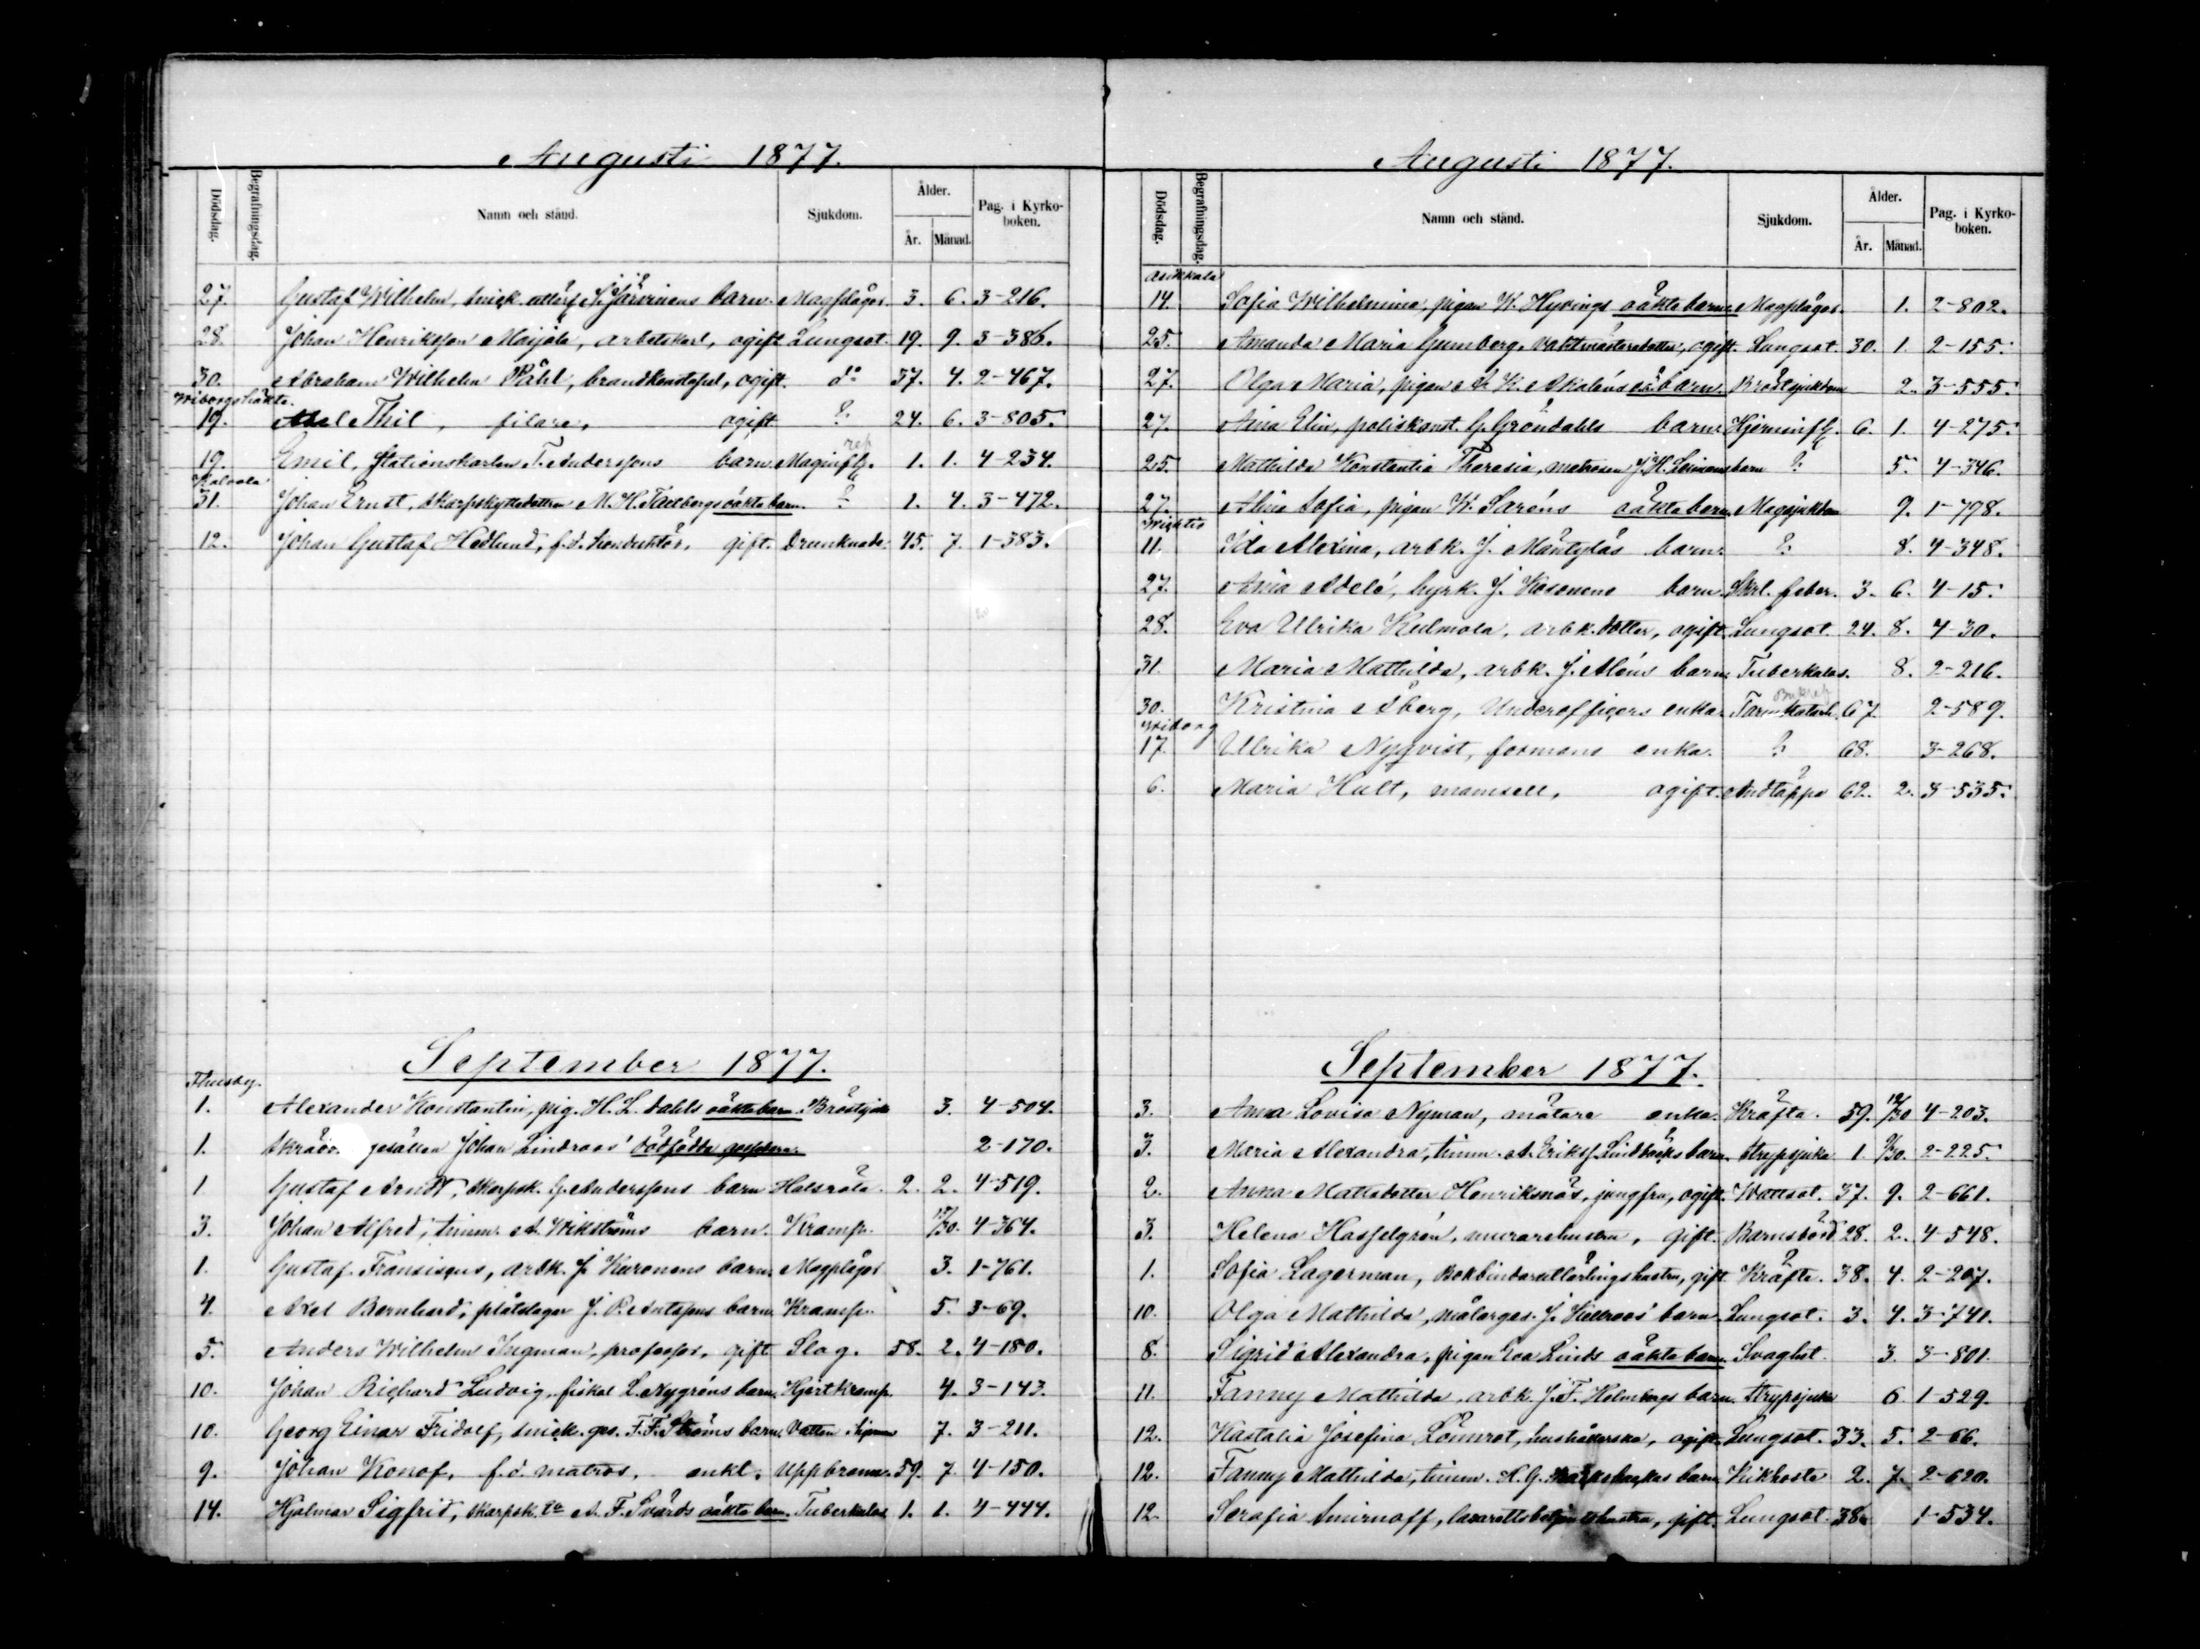 Augusti 1877.
Dödsdag. Begrafningsdag. Namn och stånd. Sjukdom. Ålder. År. Månad. Pag. i Kyrko-boken.
27. Gustaf Wilhelm, snick. utlärl. Järvinens barn. Magplågor. 3. 6. 3-216.
28. Johan Henriksson Maijala, arbetskarl, ogift Lungsot. 19. 9. 3-386.
30. Abraham Wilhelm Påhl, brandkonstapel, ogift. do 37. 4. 2-467.
Wiborgs häkte.
19. Axel Thil, filare, ogift ? 24. 6. 3-805.
19. Emil, Stationskarlen T. Anderssons barn. Maginfl. 1. 1. 4-234.
Kalvola
31. Johan Ernst, skarpskyttedottren M. H. oäkta barn. ? 1. 4. 3-472.
12. Johan Gustaf Hedlund, f.d. konduktör, gift. Drunknade. 45. 7. 1-383.
September 1877.
Thusby.
1. Alexander Konstantin, pig. H. L. Dahls oäkta barn. Bröstsjuk 3. 4-504.
1. Skrädd gesällen Johan Lindroos' dödfödda gossbarn. 2-170.
1 Gustaf Arndt, skarpsk. G. Anderssons barn Halsröta. 2. 2. 4-519.
3. Johan Alfred, timm. A. Wikströms barn. Kramp. 13/30. 4-364.
1. Gustaf Fransisqus, arbk. J. Kuronens barn. Magplågor 3. 1-761.
4. Axel Bernhard, plåtslagar J. R. barn. Kramp. 5. 3-69.
5. Anders Wilhelm Ingman, professor, gift Slag. 58. 2. 4-180.
10. Johan Richard Ludvig, fiskal L. Nygréns barn. Hjertkramp. 4. 3-143.
10. Georg Einar Fridolf, snick. ges. F. F. Ströms barn. Vatten 7. 3-211.
9. Johan Konof, f.d. matros, enkl. Uppbränn. 59. 7. 4-150.
14. Hjalmar Sigfrid, skarpsk. A. F. Svärds oäkta barn. Tuberkulos 1. 1. 4-444.
Augusti 1877.
Dödsdag. Begrafningsdag. Namn och stånd. Sjukdom. Ålder. År. Månad. Pag. i Kyrko-boken.
Asikkala
14. Sofia Wilhelmina, pigan W. Hyvings oäkta barn. Magplågor. 1. 2-802.
25. Amanda Maria Gumberg, vaktmästaredotter, ogift. Lungsot. 30. 1. 2-155.
27. Olga Maria, pigan A. K. Askolins barn. Bröstsjukdom 2. 3-555.
27. Aina Elin, poliskonst. G. Gröndahls barn. Hjerninfl. 6. 1. 4-275.
25. Mathilda Konstantia Theresia, matrosen J. H. barn ? 5. 4-346.
27. Alina Sofia, pigan W. Saréns oäkta barn. Magsjukdom 9. 1-798.
Wichtis
11. Ida Alexina, arbk. J. Mäntyläs barn. ? 8. 4-348.
27. Anna Adele, hyrk. J. Kosonens barn. Skrl. feber. 3. 6. 4-15.
28. Eva Ulrika Kulmala, arbk. dotter, ogift. Lungsot. 24. 8. 4-30.
31. Maria Mathilda, arbk. J. Aléns barn. Tuberkulos. 8. 2-216.
30. Kristina Åberg, Underofficers enka. Tarmkatarh. 67. 2-589.
Wiborg
17. Ulrika Nyqvist, formans enka. ? 68. 3-268.
6. Maria Hult, mamsell, ogift. Andtäppa 62. 2. 3-535.
September 1877.
3. Anna Lovisa Nyman, mätare enka. Kräfta. 59. 12/30 4-203.
3. Maria Alexandra, timm. A. Erikss. Lindbäcks barn. Strypsjuka 1. 2-225.
2. Anna Mattsdotter Henriksnäs, jungfru, ogift. Wattsot. 37. 9. 2-661.
3. Helena Hasselgrén, murarehustru, gift. Barnsbörd 28. 2. 4-548.
1. Sofia Lagerman, Bokbindareutlärlingshustru, gift Kräfta. 38. 4. 2-207.
10. Olga Mathilda, målarges. J. barn. Lungsot. 3. 4. 3-741.
8. Sigrid Alexandra, pigan Eva Linds oäkta barn. Svaghet. 3. 3-801.
11. Fanny Mathilda, arbk. J. F. Holmbergs barn. Strypsjuka 6 1-529.
12. Kastalia Josefina Lönnrot, hushållerska, ogift. Lungsot. 33. 5. 2-66.
12. Fanny Mathilda, timm. K. G. barn. Kikhosta 2. 7. 2-620.
12. Serafia Smirnoff, lasarettsbetjentshustru, gift. Lungsot. 38. 1-534.